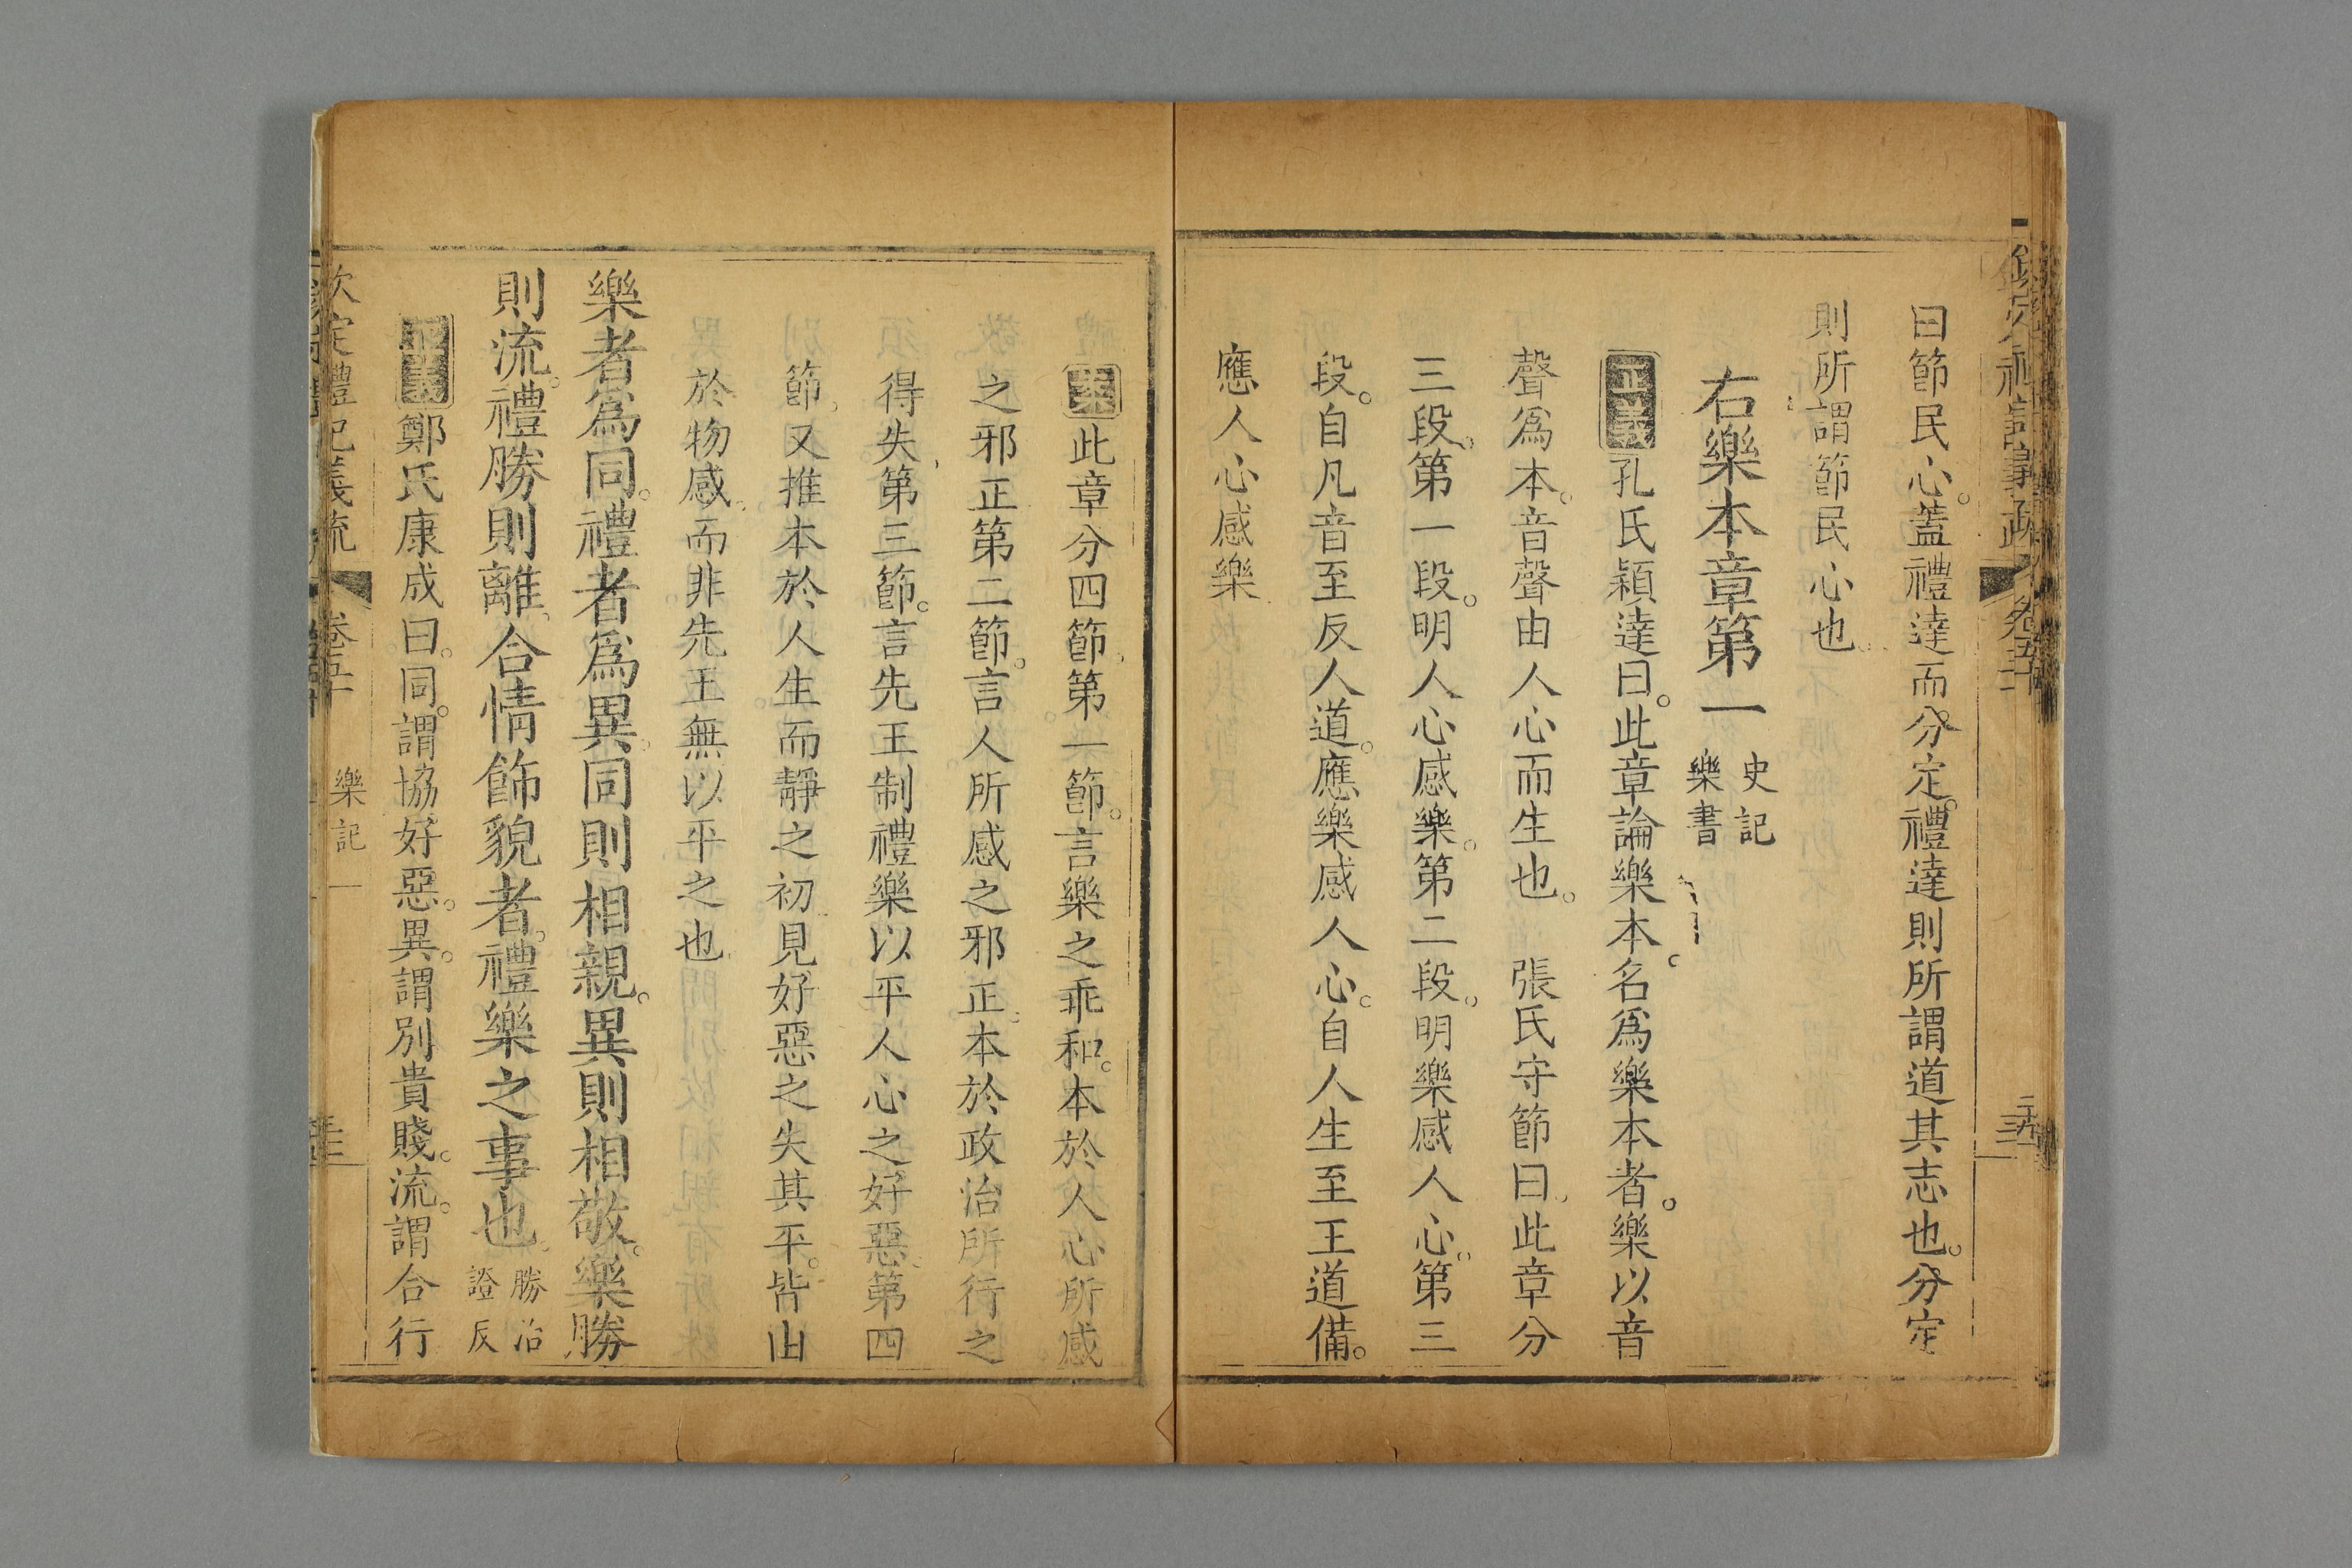 曰節民心。蓋禮達而分定。禮達則所謂道其志也。分定
則所謂節民心也
右樂本章第一 史記
樂書
正義 孔氏穎達曰。此章論樂本。名爲樂本者。樂以音
聲爲本。音聲由人心而生也。 張氏守節曰。此章分
三段。第一段。明人心感樂。第二段。明樂感人心。第三
段。自凡音至反人道。應樂感人心。自人生至王道備。
應人心感樂
案 此章分四節。第一節。言樂之乖和。本於人心所感
之邪正第二節。言人所感之邪正。本於政治所行之
得失。第三節。言先王制禮樂以平人心之好惡。第四
節。又推本於人生而靜之初見好惡之失其平。皆由
於物感。而非先王無以平之也
樂者爲同。禮者爲異。同則相親。異則相敬。樂勝
則流。禮勝則離。合情飾貌者。禮樂之事也。 勝冶
證反
正義 鄭氏康成曰。同。謂協好惡。異。謂別貴賤。流。謂合行
欽定禮記義疏 卷五十 樂記一